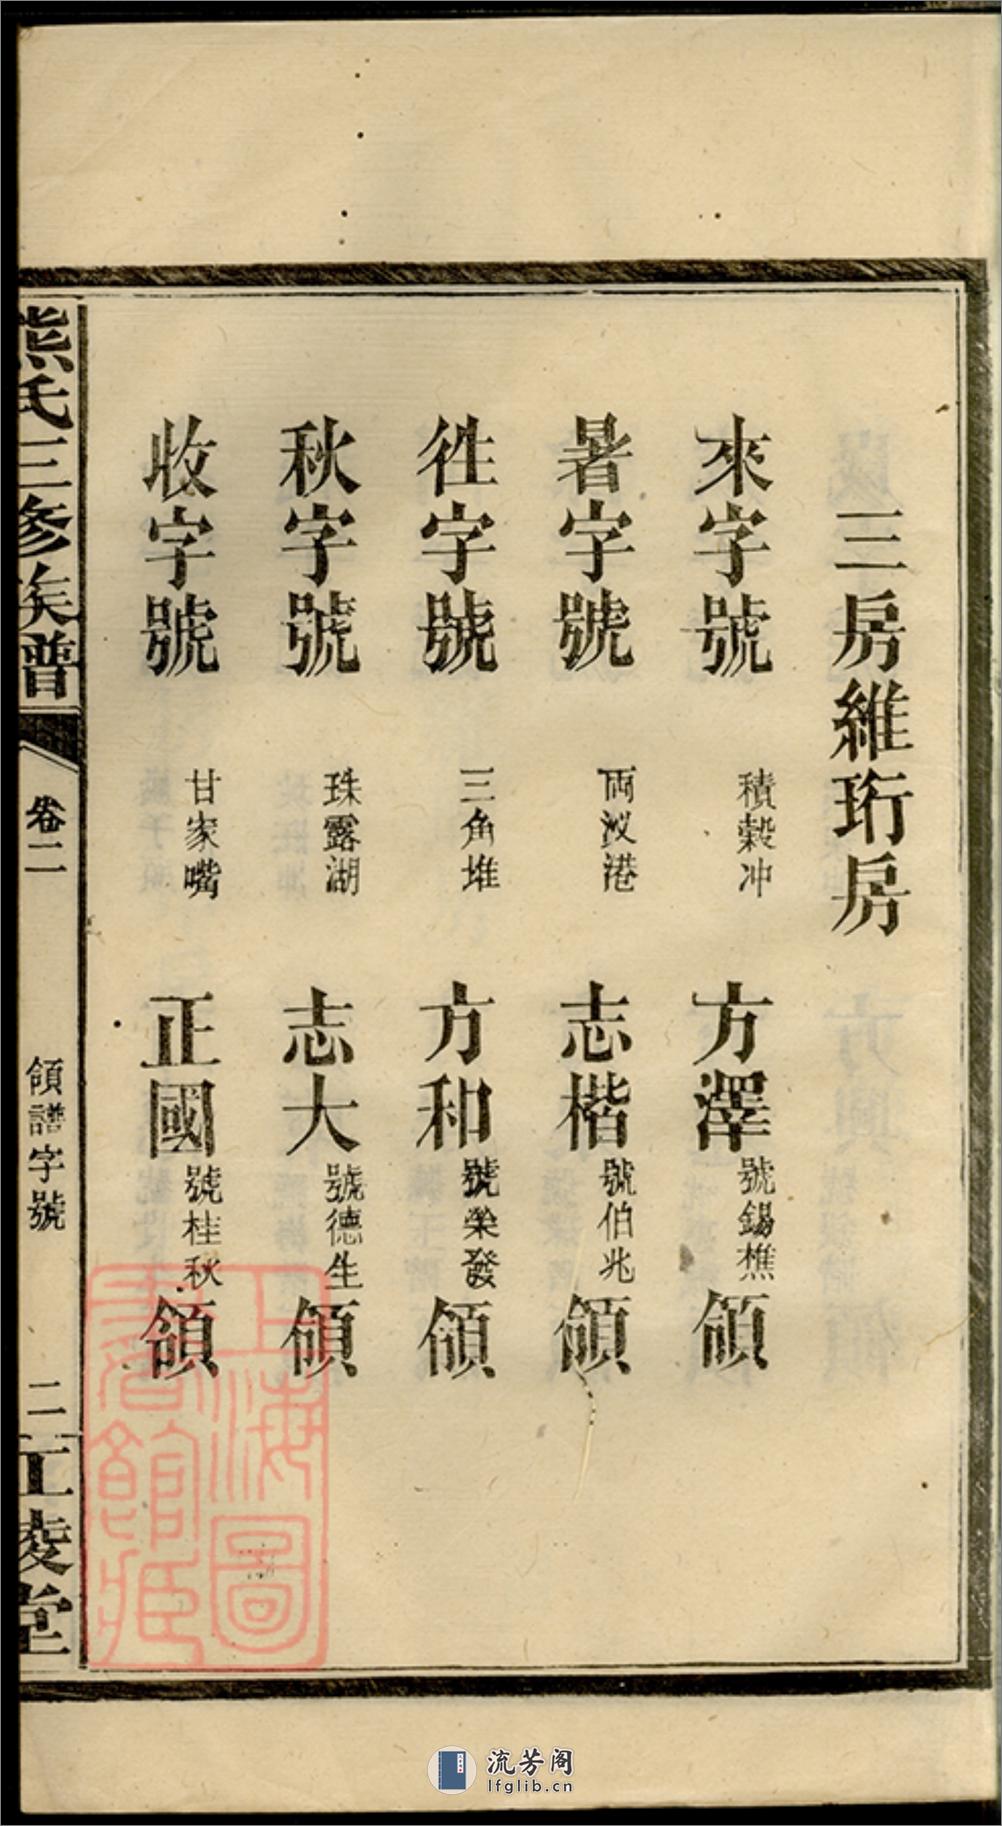 三房維珩房
來字號 積穀冲 方澤 號錫樵 領
暑字號 兩汊港 志楷 號伯兆 領
徃字號 三角堆 方和 號榮發 領
秋字號 珠露湖 志大 號德生 領
收字號 甘家嘴 正國 號桂秋 領
熊氏三修族譜 卷二 領譜字號 二 江陵堂
上海圖書館藏
流芳阁
lfglib.cn